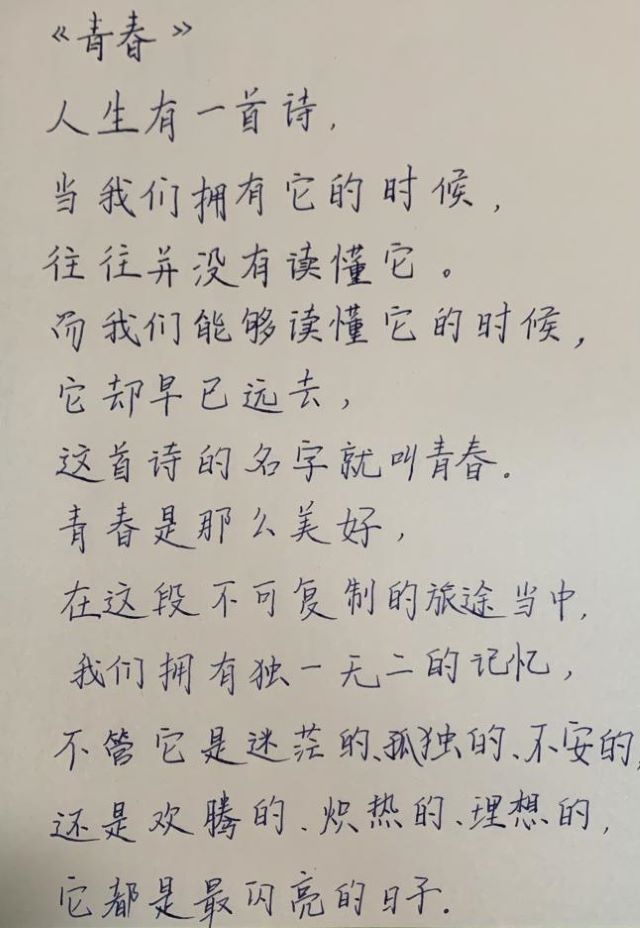 《青春》
人生有一首诗,
当我们拥有它的时候,
往往并没有读懂它。
而我们能够读懂它的时候,
它却早已远去,
这首诗的名字就叫青春.
青春是那么美好,
在这段不可复制的旅途当中,
我们拥有独一无二的记忆,
不管它是迷茫的、孤独的、不安的,
还是欢腾的、炽热的、理想的,
它都是最闪亮的日子.